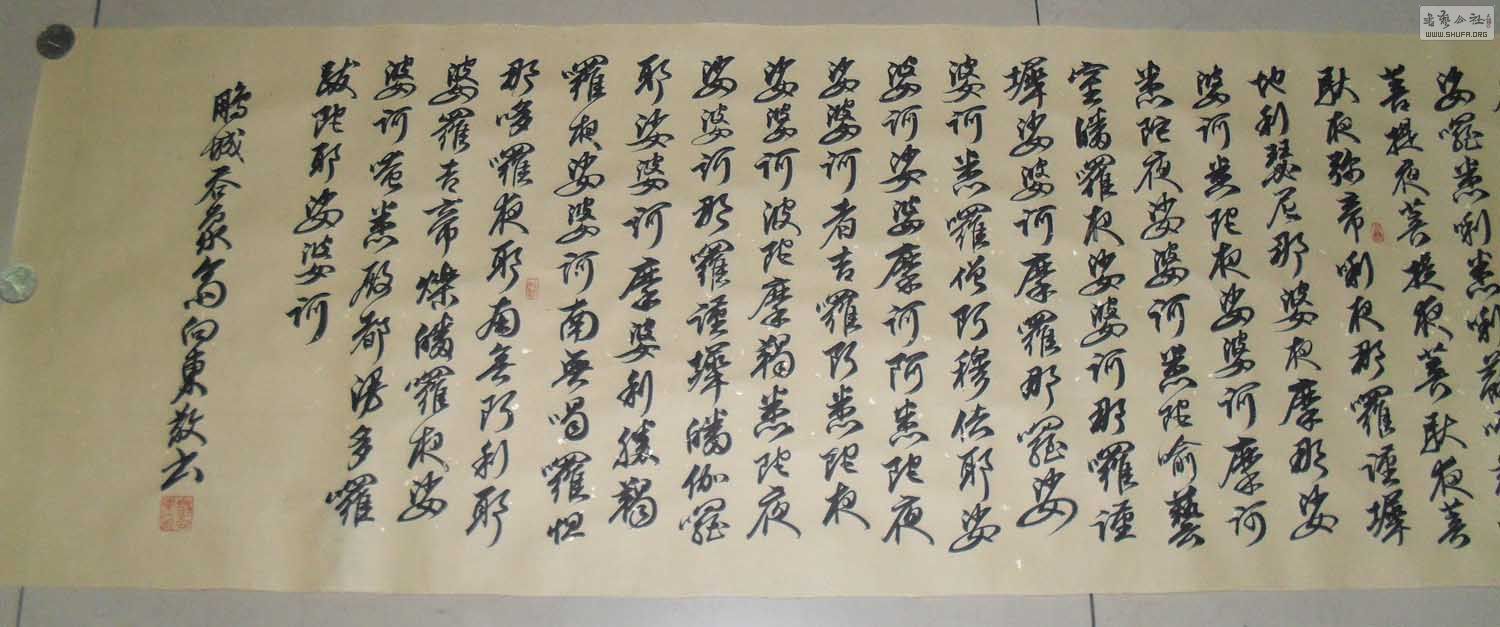 娑囉悉唎悉唎蘇
菩提夜菩提夜菩馱夜菩
馱夜弥帝唎夜那囉謹墀
地利瑟尼那婆夜摩那娑
婆訶悉陀夜娑婆訶摩訶
悉陀夜娑婆訶悉陀喻藝
室皤囉夜娑婆訶那囉謹
墀娑婆訶摩囉那囉娑
婆訶悉囉僧阿穆佉耶娑
婆訶娑婆摩訶阿悉陀夜
娑婆訶者吉囉阿悉陀夜
娑婆訶波陀摩羯悉陀夜
娑婆訶那囉謹墀皤伽囉
耶娑婆訶摩婆利勝羯
囉夜娑婆訶南無喝囉怛
那哆囉夜耶南無阿利耶
婆羅吉帝爍皤囉夜娑
婆訶唵悉殿都漫多囉
跋陀耶娑婆訶
鵬城谷象向東敬书
書藝公社
WWW.SHUFA.ORG